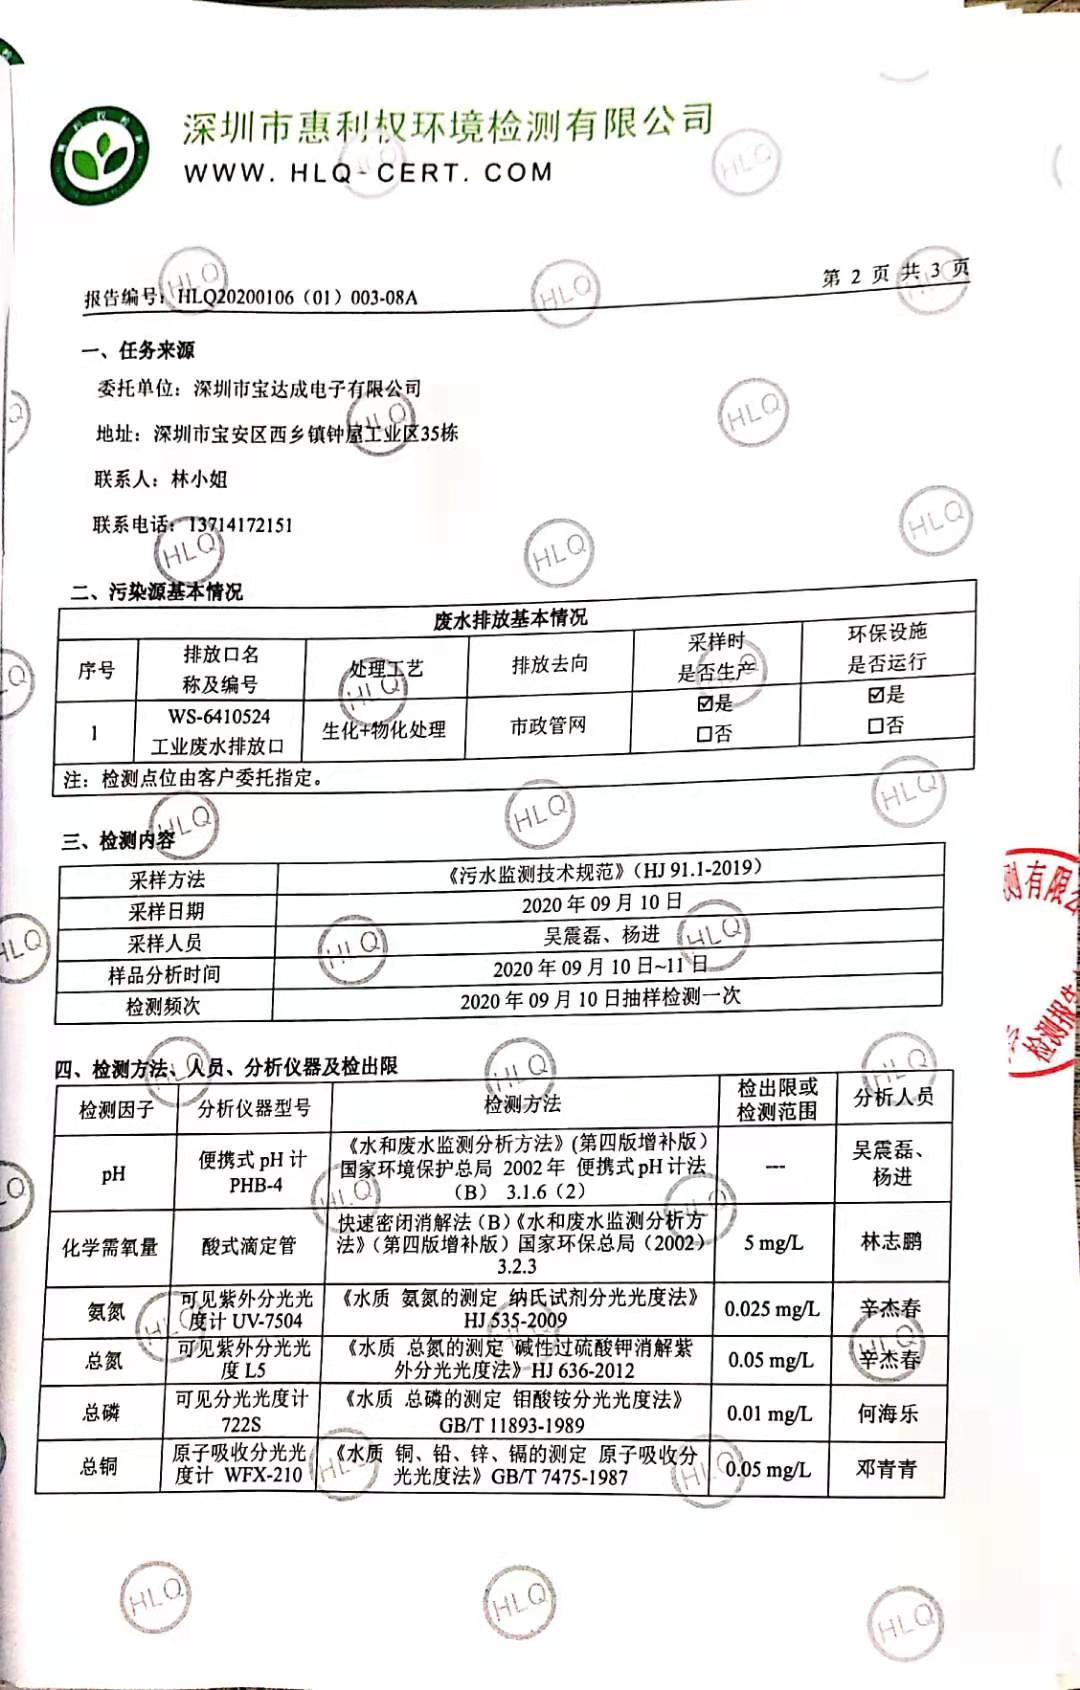 深圳市惠利权环境检测有限公司
WWW. HLQ-CERT. COM
报告编号：HLQ20200106（01）003-08A
第 2 页 共 3 页
一、任务来源
委托单位：深圳市宝达成电子有限公司
地址：深圳市宝安区西乡镇钟屋工业区35栋
联系人：林小姐
联系电话：13714172151
二、污染源基本情况
废水排放基本情况
序号
排放口名
称及编号
处理工艺
排放去向
采样时
是否生产
环保设施
是否运行
1
WS-6410524
工业废水排放口
生化+物化处理
市政管网
☑是
☐否
☑是
☐否
注：检测点位由客户委托指定。
三、检测内容
采样方法 《污水监测技术规范》（HJ 91.1-2019）
采样日期 2020 年 09 月 10 日
采样人员 吴震磊、杨进
样品分析时间 2020 年 09 月 10 日~11 日
检测频次 2020 年 09 月 10 日抽样检测一次
四、检测方法、人员、分析仪器及检出限
检测因子
分析仪器型号
检测方法
检出限或
检测范围
分析人员
pH
便携式 pH 计
PHB-4
《水和废水监测分析方法》（第四版增补版）
国家环境保护总局 2002 年 便携式 pH 计法
（B） 3.1.6（2）
---
吴震磊、
杨进
化学需氧量
酸式滴定管
快速密闭消解法（B）《水和废水监测分析方
法》（第四版增补版）国家环保总局（2002）
3.2.3
5 mg/L
林志鹏
氨氮
可见紫外分光光
度计 UV-7504
《水质 氨氮的测定 纳氏试剂分光光度法》
HJ 535-2009
0.025 mg/L
辛杰春
总氮
可见紫外分光光
度 L5
《水质 总氮的测定 碱性过硫酸钾消解紫
外分光光度法》HJ 636-2012
0.05 mg/L
辛杰春
总磷
可见分光光度计
722S
《水质 总磷的测定 钼酸铵分光光度法》
GB/T 11893-1989
0.01 mg/L
何海乐
总铜
原子吸收分光光
度计 WFX-210
《水质 铜、铅、锌、镉的测定 原子吸收分
光光度法》GB/T 7475-1987
0.05 mg/L
邓青青
测有限公
检测报告
HLQ